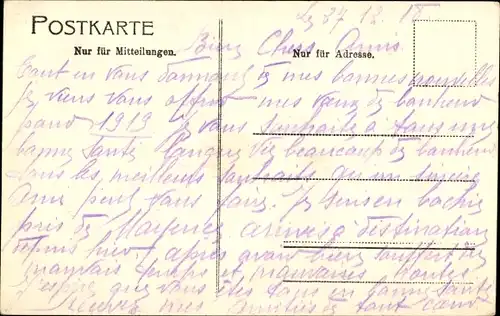 Le 27 12 18
POSTKARTE
Nur für Mitteilungen.
Nur für Adresse.
Bien Chers Amis
Tout en vous donnant de mes bonnes nouvelles
Je viens vous offrir mes vœux de bonheur
pour 1919 Je vous souhaite à tous une
bonne santé longue vie beaucoup de bonheur
tous les meilleurs souhaits qu un sincère
Ami peut vous faire. Je
près de Mayence arrivés à destination
depuis hier. après avoir bien souffert du
mauvais temps et mauvaises routes
J'espère que vous êtes tous en bonne santé
Recevez mes Amitiés de tout cœur